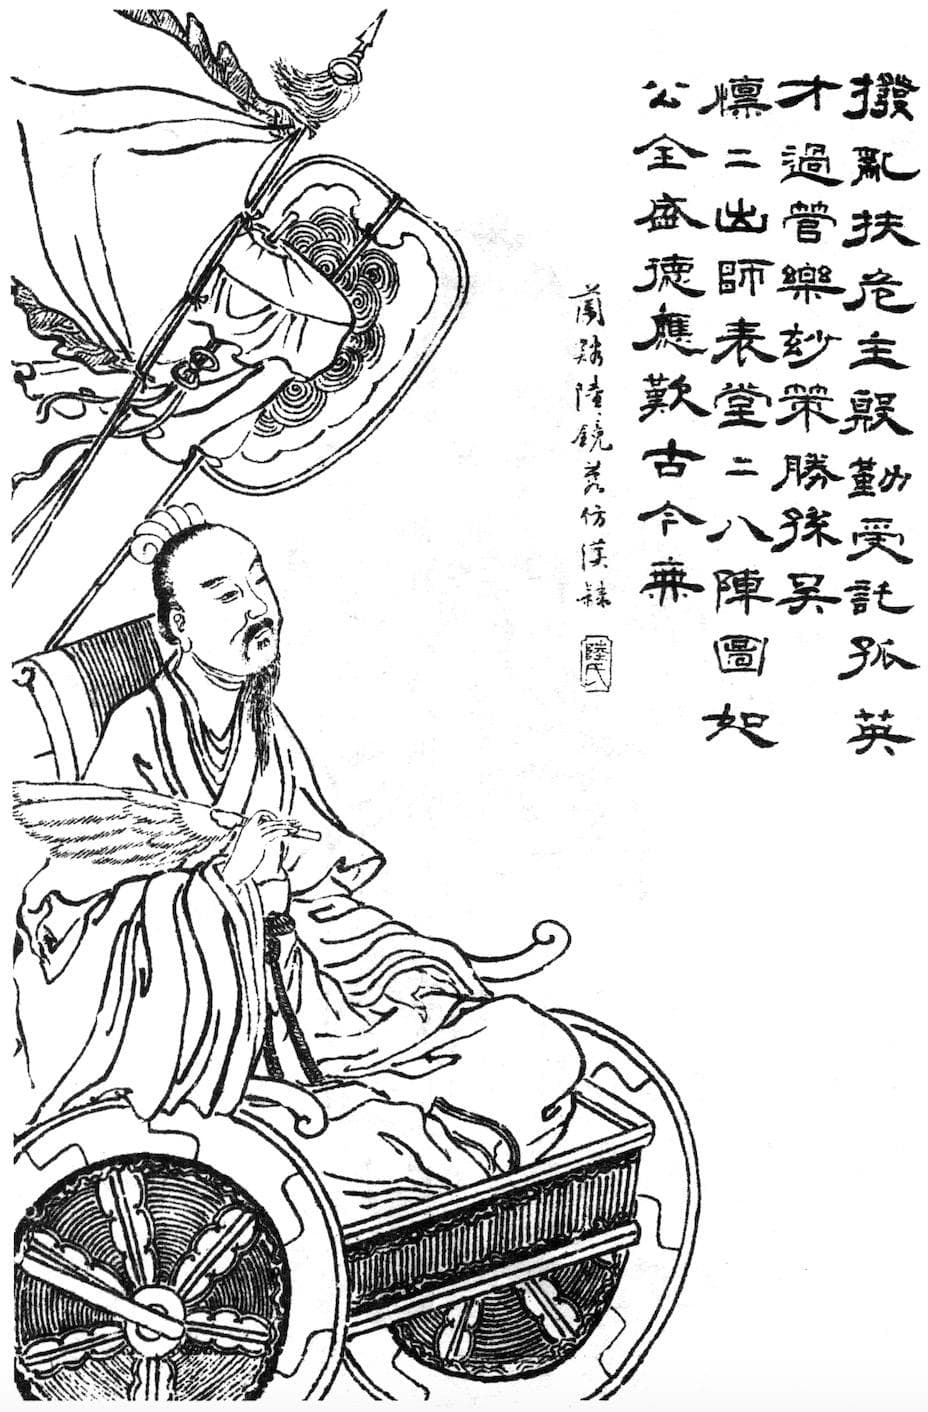 撥亂扶危主殷勤受託孤英
才過管樂玅策勝孫吳
懍二出師表堂二八陳圖如
公全盛德應歎古今無
蘭谿陸鏡蓉仿漢隸
陸氏